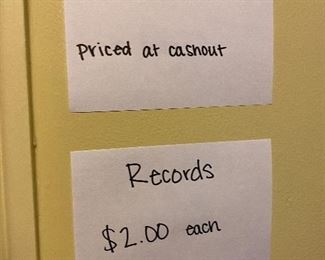 Priced at cashout
Records
$2.00 each